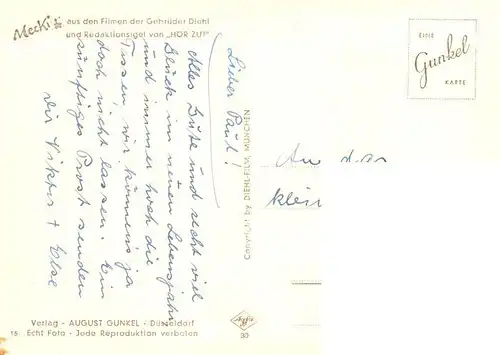 Mecki
aus den Filmen der Gebrüder Diehl
und Redaktionsigel von „HÖR ZU!"
Lieber Paul!
Alles Gute und recht viel
Glück im neuen Lebensjahr
und immer hoch die
Tassen wir können's ja
doch nicht lassen. Ein
zünftiges Prost senden
Dir Viktor + Else
Copyright by DIEHL-FILM, MÜNCHEN
EINE
Gunkel
KARTE
An den
klein
Verlag - AUGUST GUNKEL - Düsseldorf
15 Echt Foto - Jede Reproduktion verboten
Agfa
30